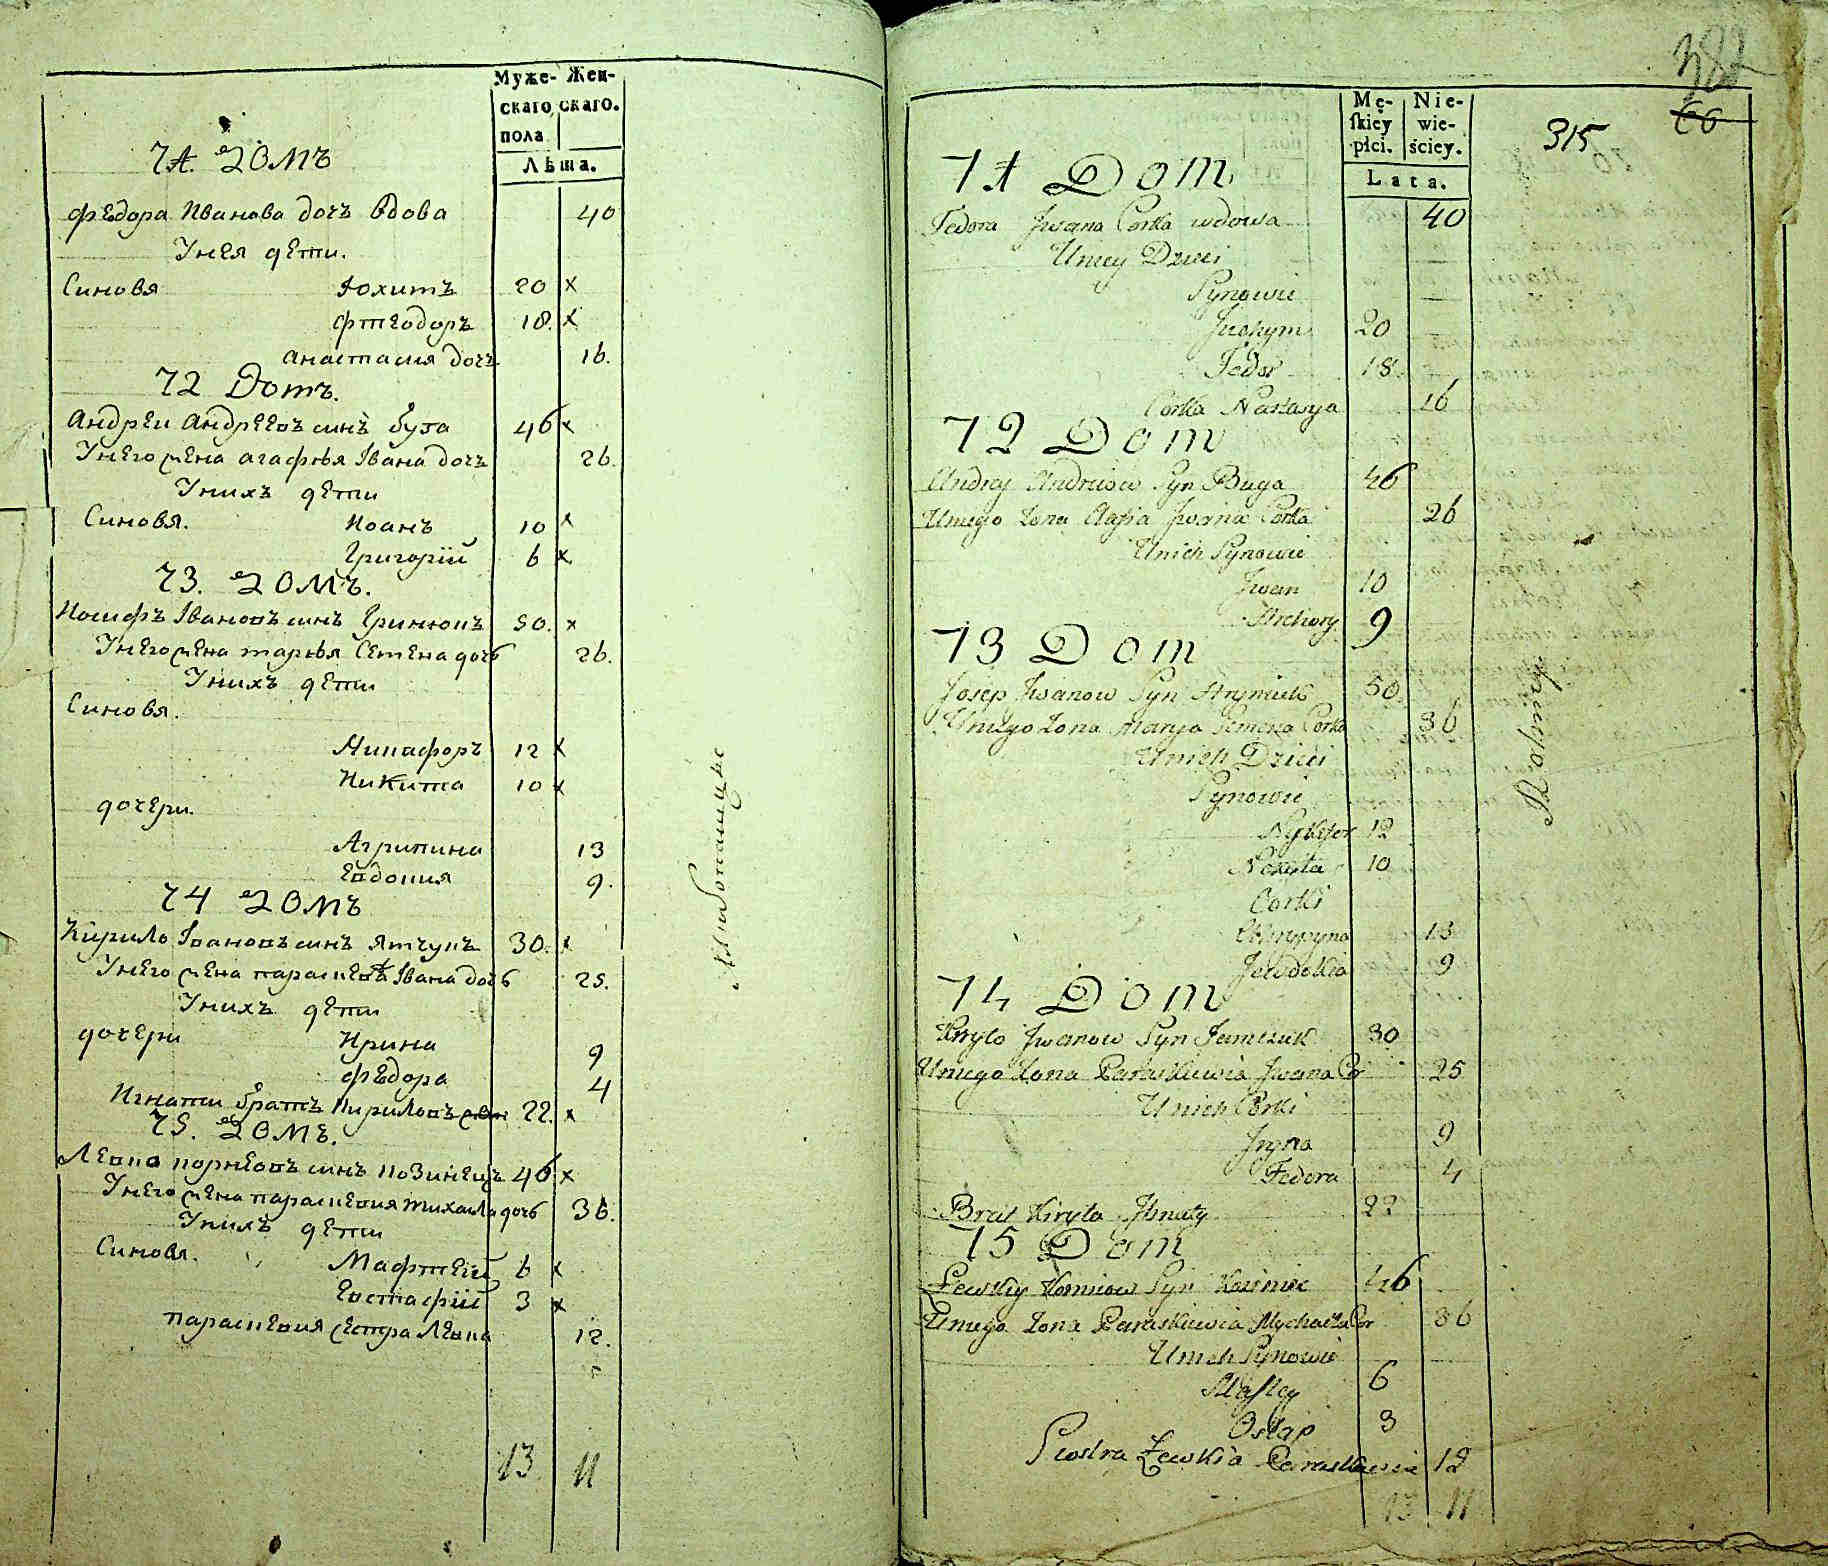 Муже- Жен-
скаго, скаго.
пола
Лѣта.
71. ДОМЪ
Федора Иванова дочъ вдова 40
Унея дети.
Синовя Юхимъ 20 x
Фтеодоръ 18. x
Анастасия дочъ 16.
72 Домъ.
Андреи Андреевъ синъ Буга 46 x
Унего жена Агафия Івана дочъ 26.
Унихъ дети
Синовя. Иоанъ 10 x
Григорій 6 x
73. ДОМЪ.
Иосифъ Івановъ синъ Гринюкъ 50. x
Унего жена Марья Семена дочъ 26.
Унихъ дети
Синовя.
Никифоръ 12 x
Никита 10 x
дочери.
Агрипина 13
Евдокия 9.
74 ДОМЪ
Кирило Івановъ синъ Ятчукъ 30. x
Унего жена Параскева Івана дочъ 25.
Унихъ дети
дочери Ирина 9
Федора 4
Игнати братъ Кириловъ 22. x
75. ДОМЪ.
Левко Корнеовъ синъ Козинецъ 46 x
Унего жена Параскевия Михаила дочъ 36.
Унихъ дети
Синовя. Мафтей 6 x
Евстафій 3 x
Параскевия сестра Левка 12.
13 11
382
66
315
Mę- Nie-
skiey wie-
płci. ściey.
Lata.
71 Dom
Fedora Jwana Corka wdowa 40
Uniey Dzieci
Synowie
Juchym 20
Fedor 18
Corka Nastasya 16
72 Dom
Andrey Andriiow Syn Buga 46
Uniego Zona Agafia Jwana Corka 26
Unich Synowie
Jwan 10
Hrehory 9
73 Dom
Josep Jwanow Syn Hryniuk 50
Uniego Zona Marya Semena Corka 36
Unich Dzieci
Synowie
Nykyfor 12
Nekyta 10
Corki
Ohrypyna 13
Jewdokia 9
74 Dom
Kiryło Jwanow Syn Jamczuk 30
Uniego Zona Paraskiewia Jwana Cor 25
Unich Corki
Jryna 9
Fedora 4
Brat Kiryła Jhnaty 22
75 Dom
Lewkiy Korniow Syn Koziniec 46
Uniego Zona Paraskiewia Mychała Cor 36
Unich Synowie
Maftey 6
Ostap 3
Siostra Lewkia Paraskiewia 12
13 11